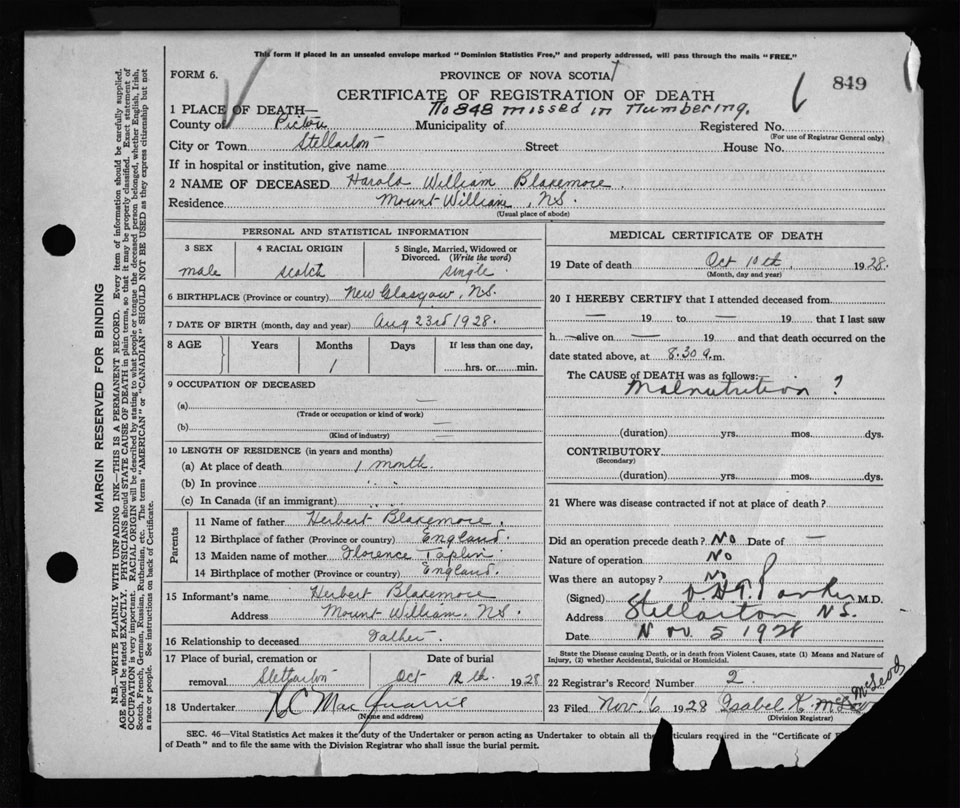 This form if placed in an unsealed envelope marked "Dominion Statistics Free," and property addressed, will pass through the mails "FREE."
FORM 6.
PROVINCE OF NOVA SCOTIA
849
CERTIFICATE OF REGISTRATION OF DEATH
No 848 missed in numbering.
1 PLACE OF DEATH—
County of Pictou Municipality of Registered No.
(For use of Registrar General only)
City or Town Stellarton Street House No.
If in hospital or institution, give name
2 NAME OF DECEASED Harold William Blakemore.
Residence Mount William, N.S.
(Usual place of abode)
PERSONAL AND STATISTICAL INFORMATION
3 SEX 4 RACIAL ORIGIN 5 Single, Married, Widowed or Divorced. (Write the word)
male scotch single.
6 BIRTHPLACE (Province or country) New Glasgow, N.S.
7 DATE OF BIRTH (month, day and year) Aug 23rd 1928.
8 AGE Years Months Days If less than one day,
1 hrs. or min.
9 OCCUPATION OF DECEASED
(a) —
(Trade or occupation or kind of work)
(b) —
(Kind of industry) —
10 LENGTH OF RESIDENCE (in years and months)
(a) At place of death 1 month.
(b) In province " "
(c) In Canada (if an immigrant)
Parents
11 Name of father Herbert Blakemore.
12 Birthplace of father (Province or country) England.
13 Maiden name of mother Florence Taplin.
14 Birthplace of mother (Province or country) England.
15 Informant's name Herbert Blakemore
Address Mount William, N.S.
16 Relationship to deceased Father.
17 Place of burial, cremation or removal Stellarton
Date of burial Oct 12th. 1928
18 Undertaker MacQuarrie
(Name and address)
MEDICAL CERTIFICATE OF DEATH
19 Date of death Oct 10th, 1928.
(Month, day and year)
20 I HEREBY CERTIFY that I attended deceased from
— 19 to — 19 that I last saw
h — alive on — 19 and that death occurred on the
date stated above, at 8.30 a.m.
The CAUSE of DEATH was as follows:—
Malnutrition ?
(duration) yrs. mos. dys.
CONTRIBUTORY
(Secondary)
(duration) yrs. mos. dys.
21 Where was disease contracted if not at place of death?
Did an operation precede death? No Date of —
Nature of operation No
Was there an autopsy? No
(Signed) Parker M.D.
Address Stellarton N.S.
Date Nov 5 1928
State the Disease causing Death, or in death from Violent Causes, state (1) Means and Nature of
Injury, (2) whether Accidental, Suicidal or Homicidal.
22 Registrar's Record Number 2
23 Filed Nov. 6 1928 Isabel K. McLeod
(Division Registrar)
SEC. 46—Vital Statistics Act makes it the duty of the Undertaker or person acting as Undertaker to obtain all the particulars required in the "Certificate of
of Death" and to file the same with the Division Registrar who shall issue the burial permit.
MARGIN RESERVED FOR BINDING
N.B.—WRITE PLAINLY WITH UNFADING INK—THIS IS A PERMANENT RECORD. Every item of information should be carefully supplied.
AGE should be stated EXACTLY. PHYSICIANS should STATE CAUSE OF DEATH in plain terms, so that it may be properly classified. Exact statement of
OCCUPATION is very important. RACIAL ORIGIN will be described by stating to what people or tongue the deceased person belonged, whether English, Irish,
Scotch, French, German, Russian, Ruthenian, etc. The terms "AMERICAN" or "CANADIAN" SHOULD NOT BE USED as they express citizenship but not
a race or people. See instructions on back of Certificate.